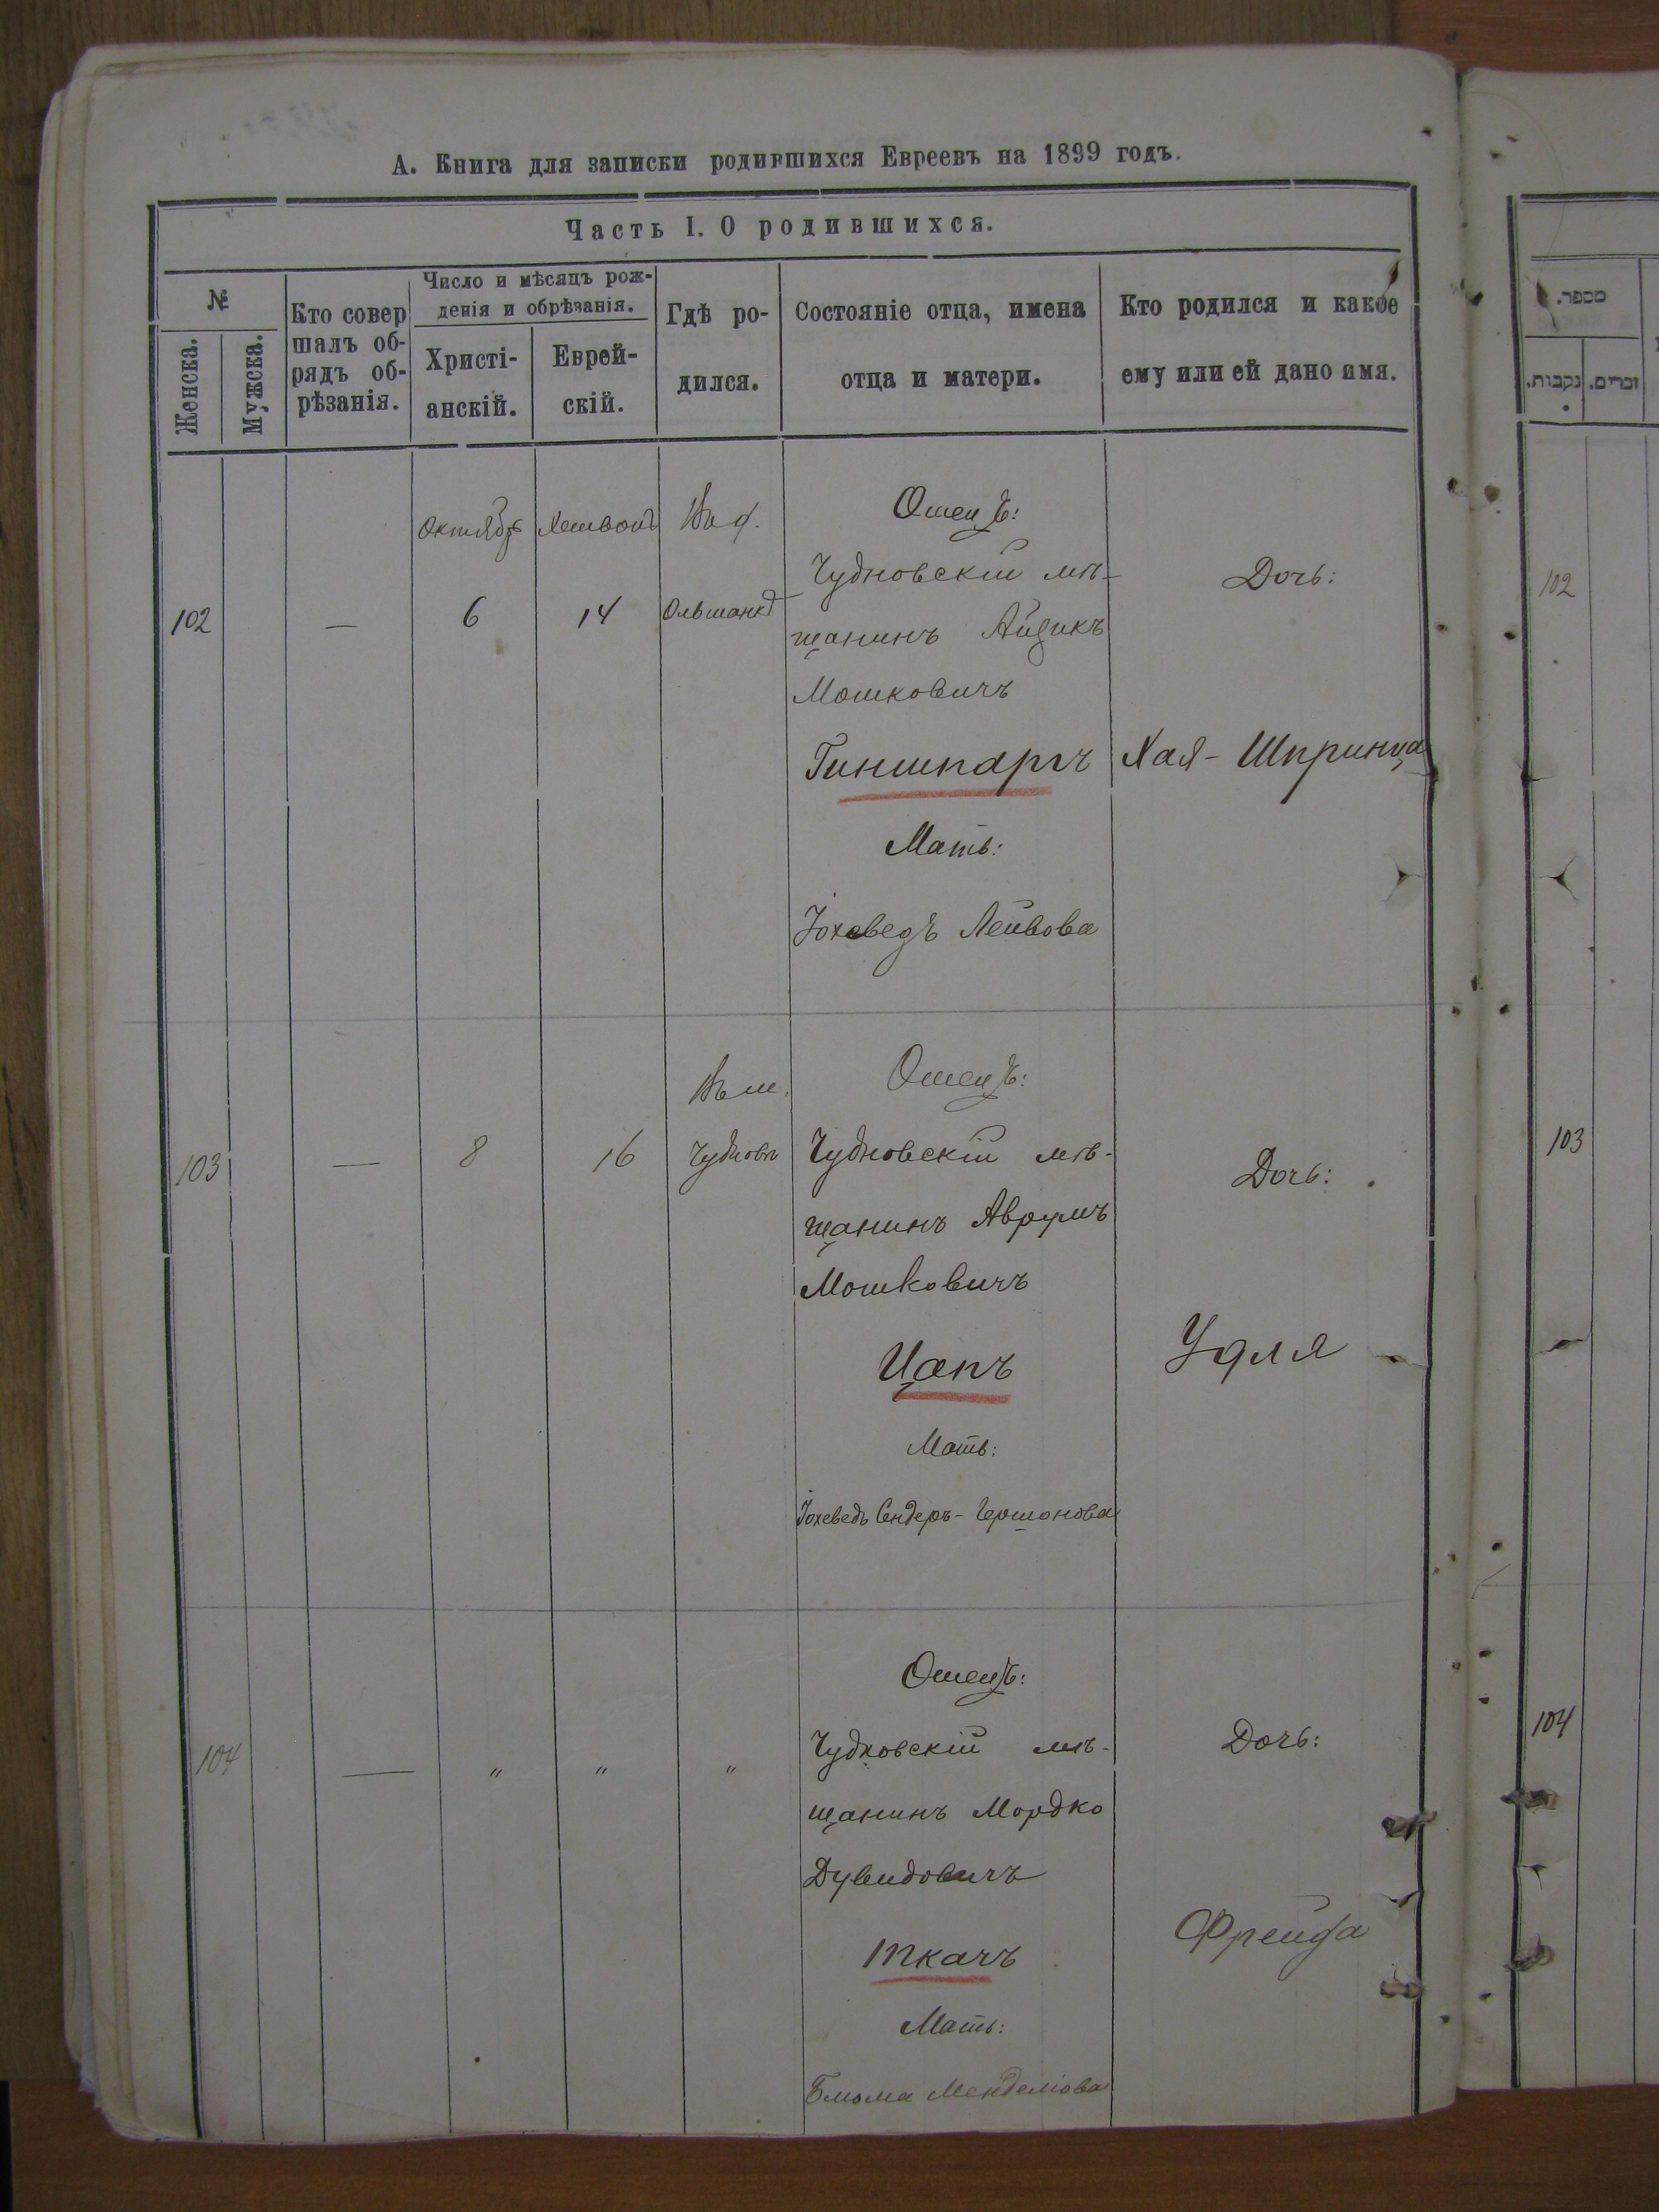 А. Книга для записки родившихся Евреевъ на 1899 годъ.
Часть I. О родившихся.
№
Женска.
Мужска.
Кто совер
шалъ об-
рядъ об-
рѣзанія.
Число и мѣсяцъ рож-
денія и обрѣзанія.
Христі-
анскій.
Еврей-
скій.
Гдѣ ро-
дился.
Состояніе отца, имена
отца и матери.
Кто родился и какое
ему или ей дано имя.
מספר.
נקבות.
זכרים.
102
—
Октябр
6
Хешвонъ
14
Въ д.
Ольшанкѣ
Отецъ:
Чудновскій мѣ-
щанинъ Айзикъ
Мошковичъ
Гиншпаргъ
Мать:
Іохеведъ Лейвова
Дочь:
Хая-Шпринца
102
103
—
8
16
Въ м.
Чудновѣ
Отецъ:
Чудновскій мѣ-
щанинъ Аврумъ
Мошковичъ
Цапъ
Мать:
Іохеведъ Сендеръ-Гершонова
Дочь:
Удля
103
104
—
"
"
"
Отецъ:
Чудновскій мѣ-
щанинъ Мордко
Дувидовичъ
Ткачъ
Мать:
Блюма Менделіова
Дочь:
Фрейда
104